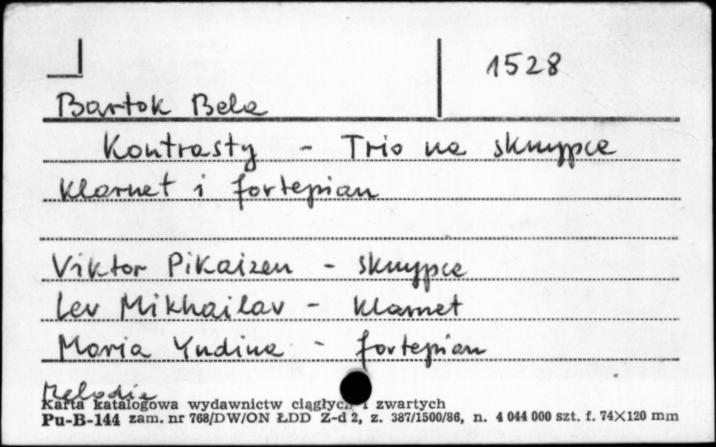 1528
Bartok Bela
Kontrasty - Trio na skrzypce
klarnet i fortepian
Viktor Pikaizen - skrzypce
Lev Mikhailav - klarnet
Maria Yudina - fortepian
Melodia
Karta katalogowa wydawnictw ciągłych i zwartych
Pu-B-144 zam. nr 768/DW/ON ŁDD Z-d 2, z. 387/1500/86, n. 4 044 000 szt. f. 74×120 mm